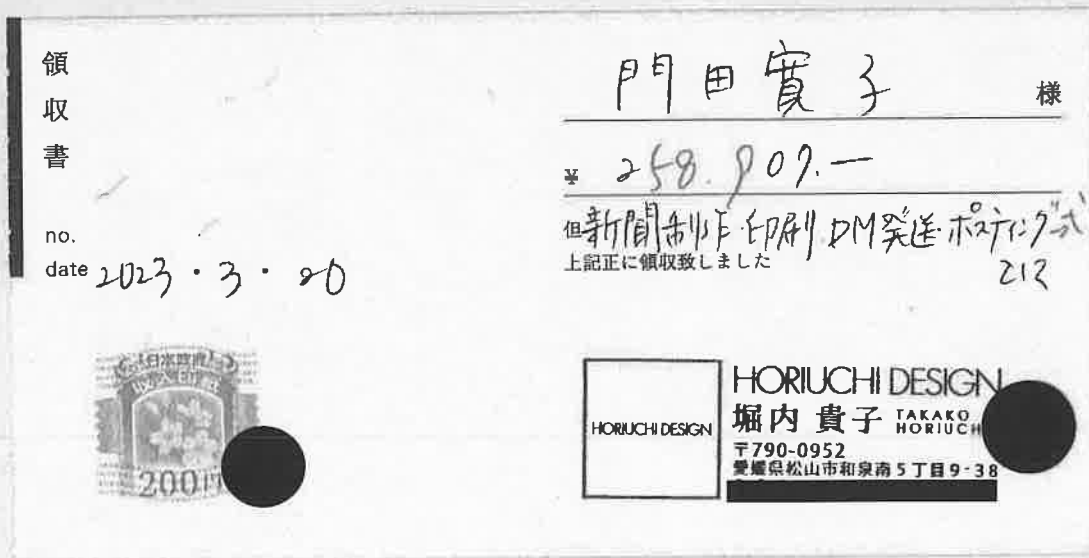 領収書
no.
date 2023・3・20
門田寛子 様
¥ 258.907.―
但 新聞制作・印刷・DM発送・ポスティング
上記正に領収致しました
日本政府
収入印紙
200円
HORIUCHI DESIGN
HORIUCHI DESIGN
堀内 貴子 TAKAKO HORIUCH
〒790-0952
愛媛県松山市和泉南5丁目9-38